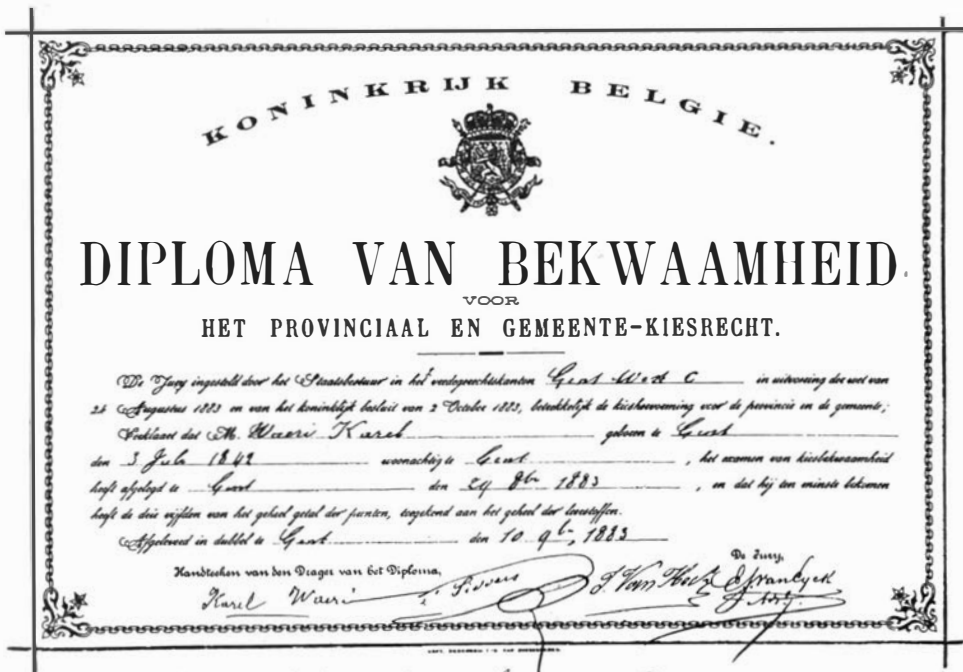 KONINKRIJK BELGIE.
DIPLOMA VAN BEKWAAMHEID.
VOOR
HET PROVINCIAAL EN GEMEENTE-KIESRECHT.
De Jury ingesteld door het Staatsbestuur in het vredegerechtskanton Gent West C in uitvoering der wet van
24 Augustus 1883 en van het koninklijk besluit van 2 October 1883, betrekkelijk de kieshervorming voor de provincie en de gemeente;
Verklaart dat M. Waeri Karel geboren te Gent
den 3 Juli 1842 woonachtig te Gent, het examen van kiesbekwaamheid
heeft afgelegd te Gent den 29 8br 1883, en dat hij ten minste bekomen
heeft de drie vijfden van het geheel getal der punten, toegekend aan het geheel der leerstoffen.
Afgeleverd in dubbel te Gent den 10 9br, 1883
De Jury,
Handteeken van den Drager van het Diploma,
Karel Waeri